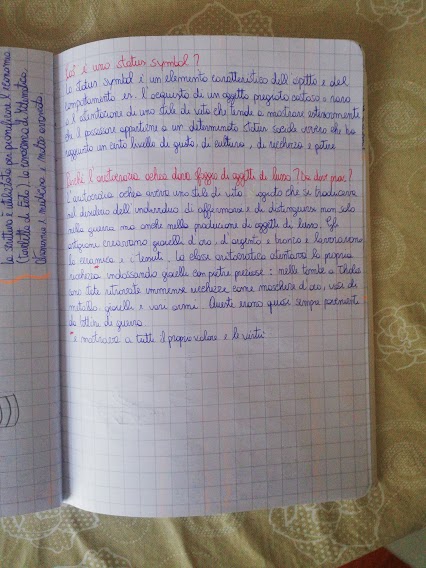 Cos'è uno status symbol?
Lo status symbol è un elemento caratteristico dell'aspetto e del
comportamento es. l'acquisto di un oggetto pregiato costoso o raro
o è ostentazione di uno stile di vita che tende a mostrare esteriormente
che il possessore appartiene a un determinato status sociale ovvero che ha
raggiunto un certo livello di gusto, di cultura, di ricchezza e potere.
Perché l'aristocrazia achea dava sfoggio di oggetti di lusso?
L'aristocrazia achea aveva uno stile di vita agiato che si traduceva
nel desiderio dell'individuo di affermarsi e di distinguersi non solo
nella guerra ma anche nella produzione di oggetti di lusso. Gli
artigiani creavano gioielli d'oro, d'argento e bronzo e lavoravano
la ceramica e i tessuti. La classe aristocratica ostentava la propria
ricchezza indossando gioielli con pietre preziose: nelle tombe a Tholos
sono state ritrovate immense ricchezze come maschere d'oro, vasi di
metallo, gioielli e varie armi. Questi erano quasi sempre provenienti
da bottini di guerra
*e mostrava a tutti il proprio valore e le virtù
la scrittura è utilizzata per pianificare l'economia